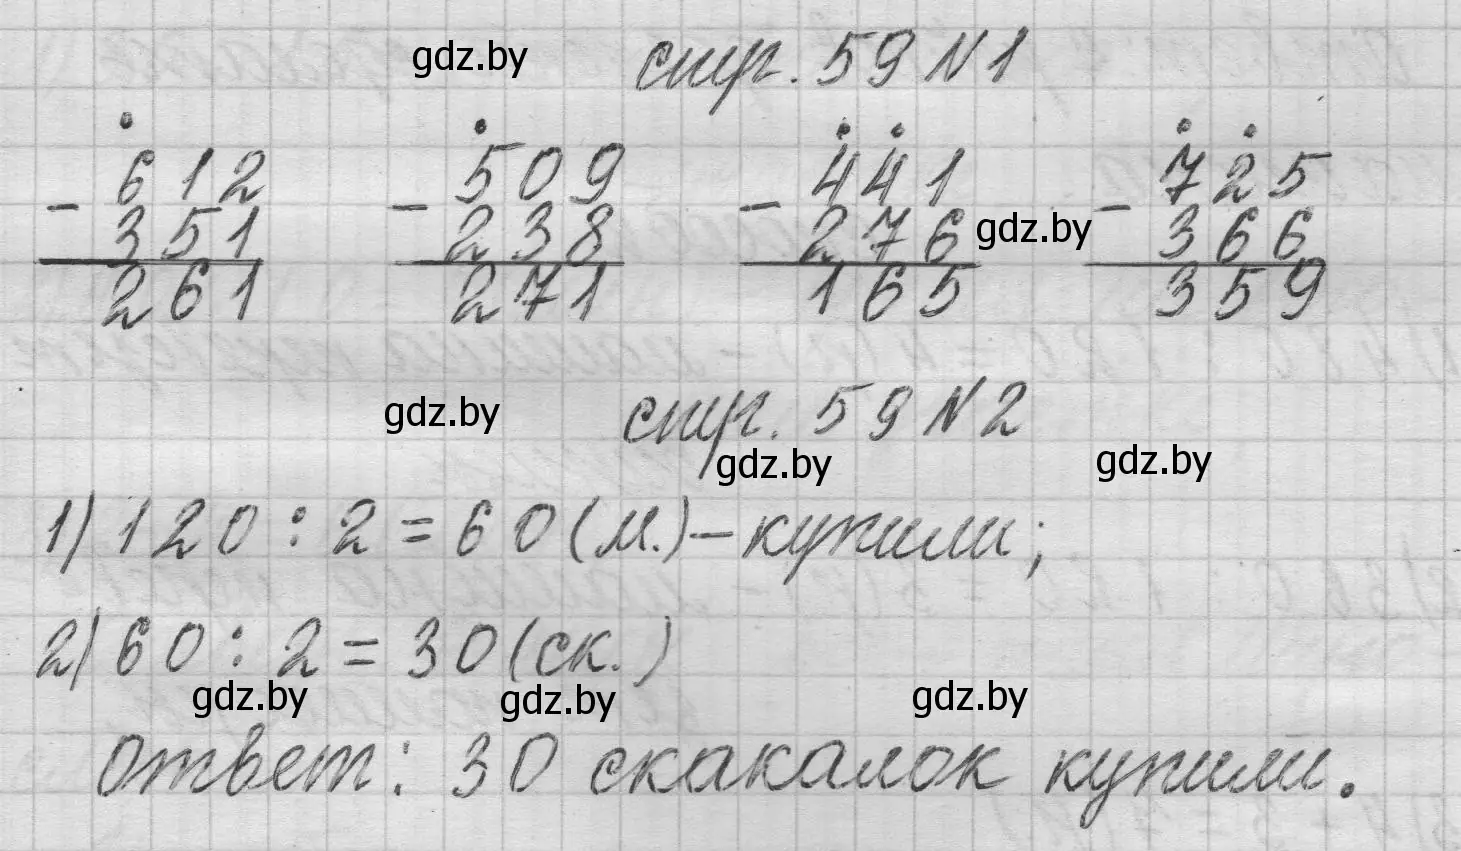 gdz.by стр. 59 N 1
- 612 - 509 - 441 - 725
351 238 276 gdz.by 366
261 271 165 359
gdz.by стр. 59 N 2
gdz.by gdz.by
1) 120 : 2 = 60 (м.) – купили;
2) 60 : 2 = 30 (ск.)
gdz.by gdz.by gdz.by
ответ: 30 скакалок купили.